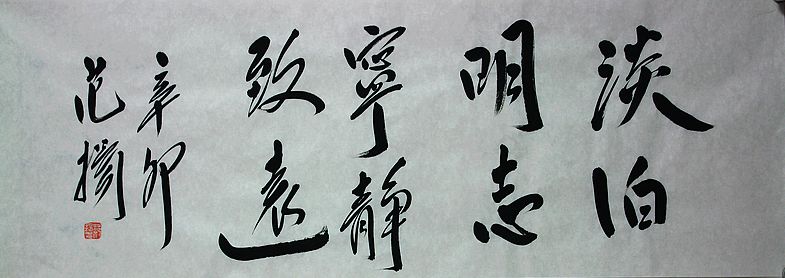 淡泊
明志
寧靜
致遠
辛卯
范